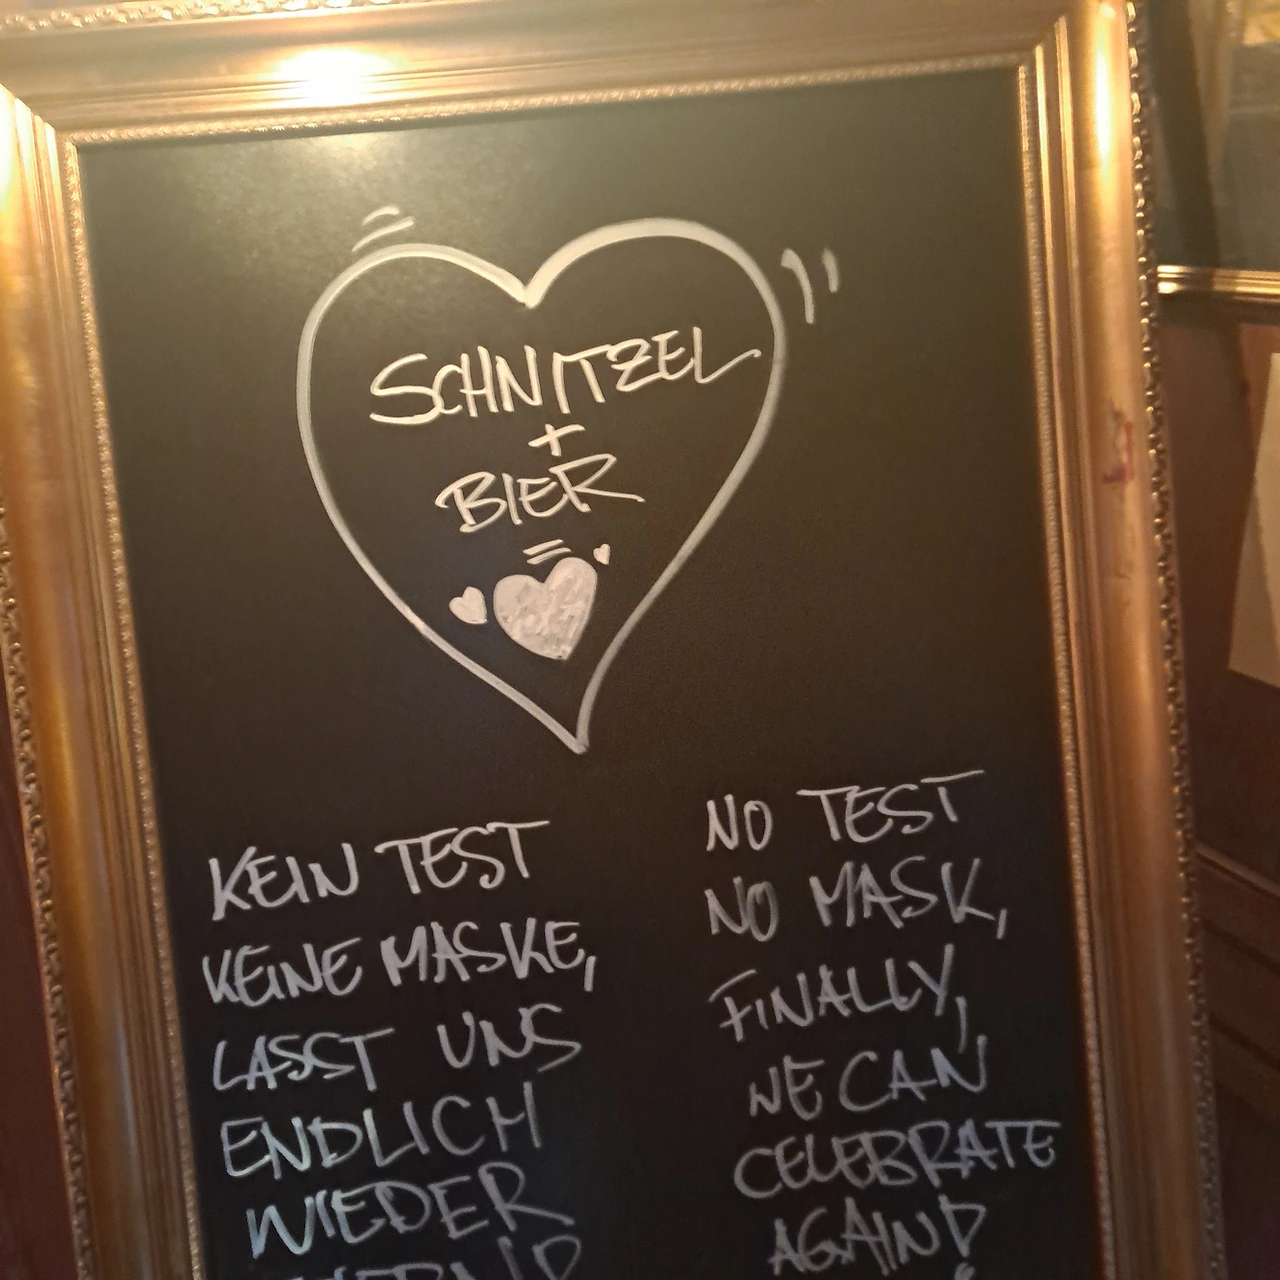 SCHNITZEL
+
BIER
KEIN TEST
KEINE MASKE,
LASST UNS
ENDLICH
WIEDER
NO TEST
NO MASK,
FINALLY,
WE CAN
CELEBRATE
AGAIN!